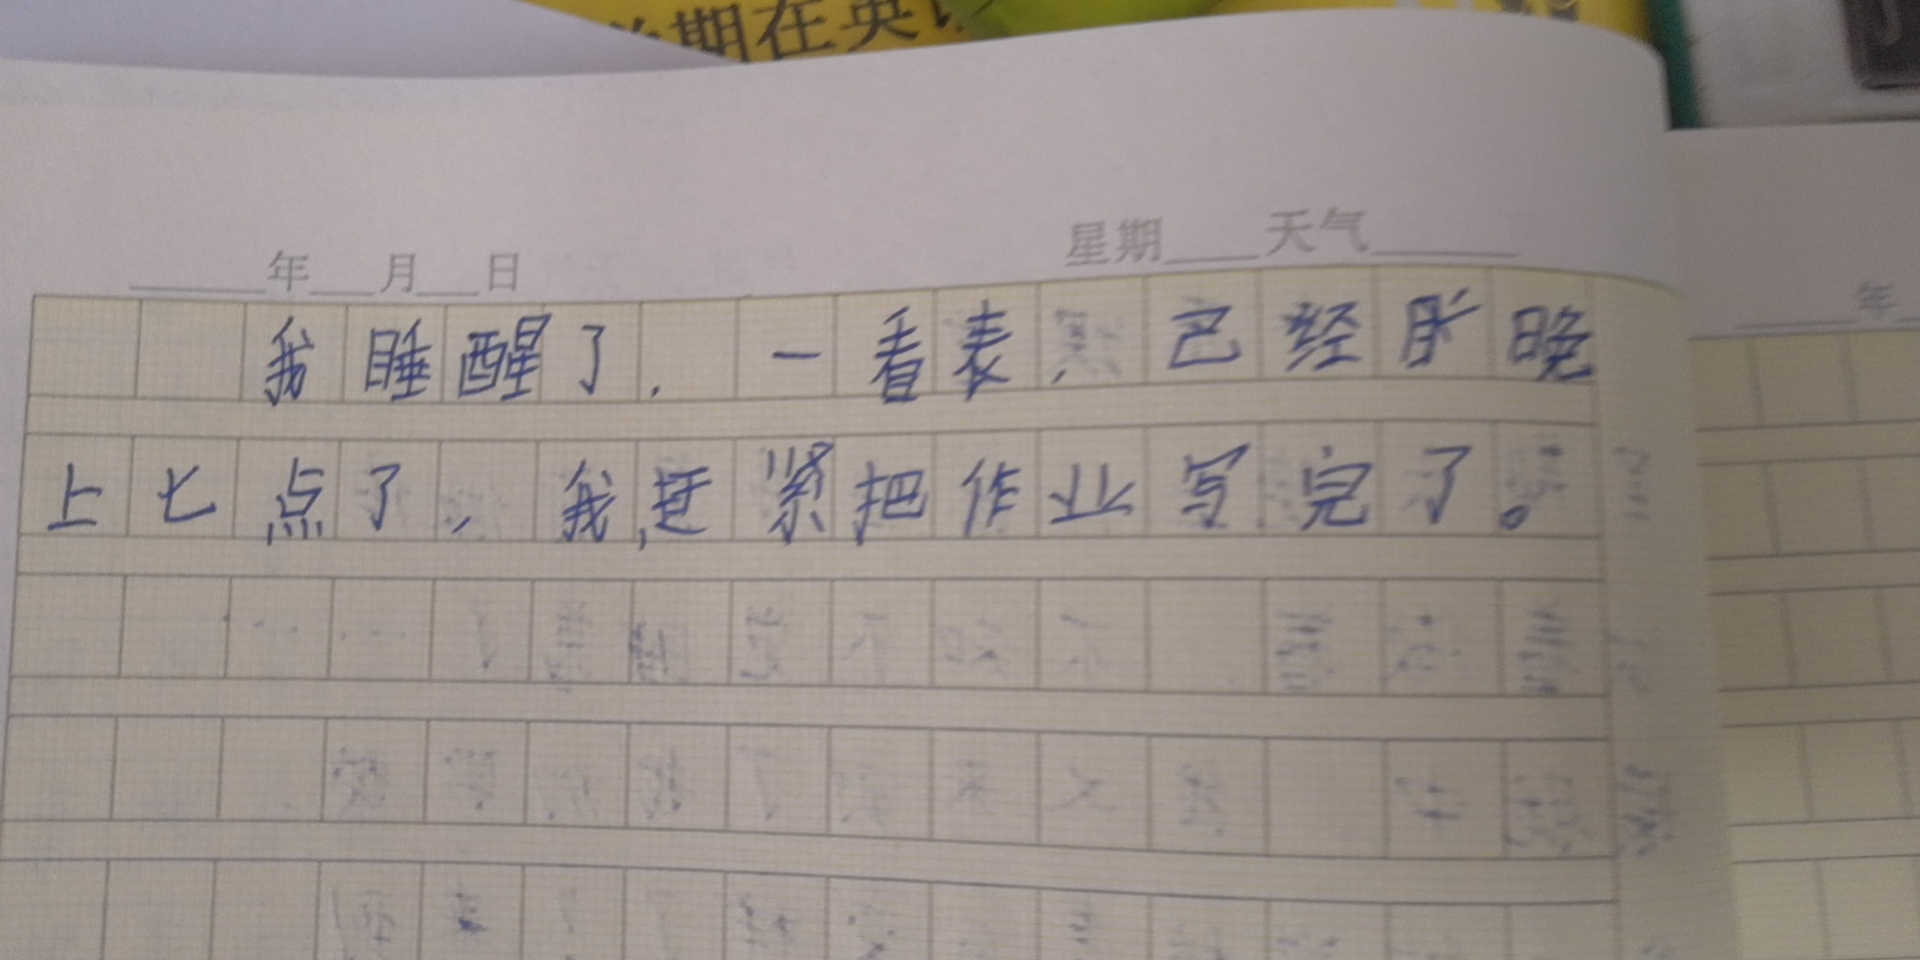 期在英
年 月 日 星期 天气
年
我睡醒了，一看表，已经是晚
上七点了，我赶紧把作业写完了。